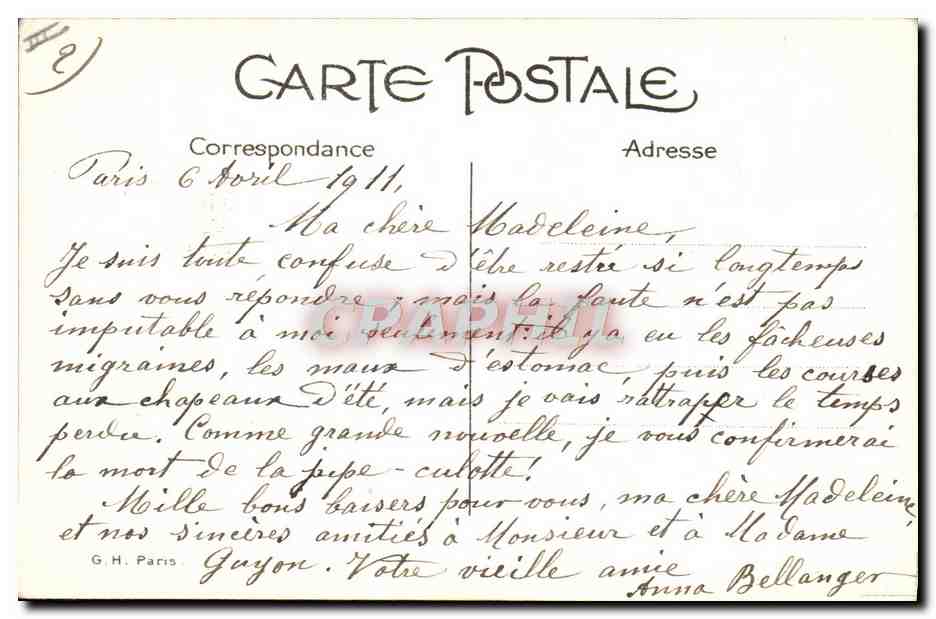 III
2)
CARTE POSTALE
Correspondance
Adresse
Paris 6 Avril 1911,
Ma chère Madeleine,
Je suis toute confuse d'être restée si longtemps
sans vous répondre, mais la faute n'est pas
imputable à moi seulement: il y a eu les fâcheuses
migraines, les maux d'estomac, puis les courses
aux chapeaux d'été, mais je vais rattraper le temps
perdu. Comme grande nouvelle, je vous confirmerai
la mort de la jupe-culotte!
Mille bons baisers pour vous, ma chère Madeleine,
et nos sincères amitiés à Monsieur et à Madame
Guyon. Votre vieille amie
Anna Bellanger
G. H. Paris.
CPAPHIL